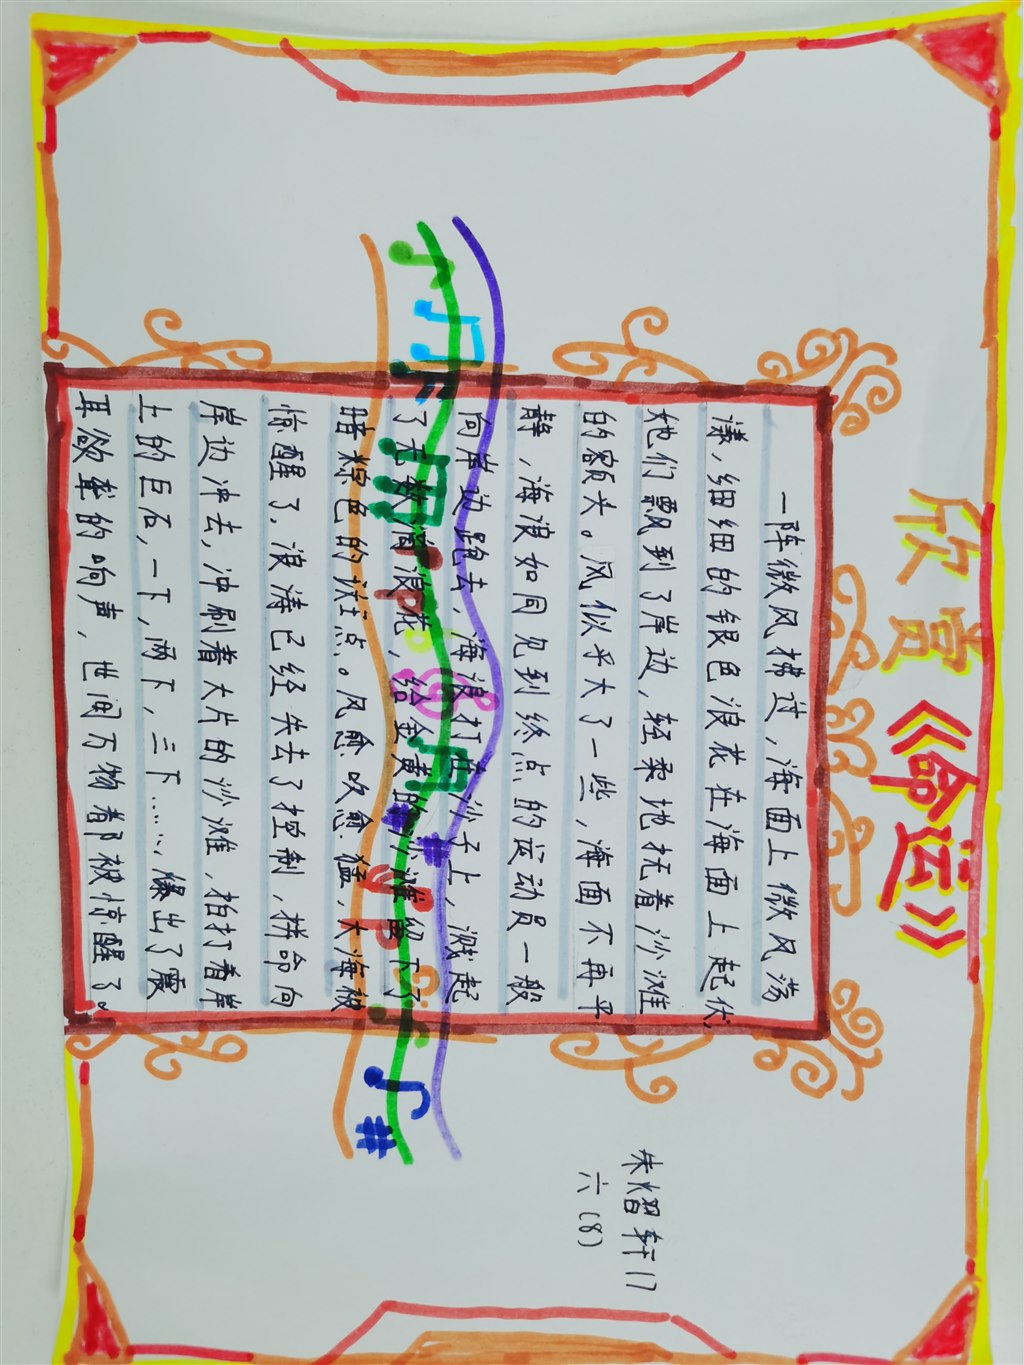 欣赏《命运》
一阵微风拂过，海面上微风荡
漾，细细的银色浪花在海面上起伏，
她们飘到了岸边，轻柔地抚着沙滩
的额头。风似乎大了一些，海面不再平
静，海浪如同见到终点的运动员一般
向岸边跑去，海浪打在沙子上，溅起
了无数消浪花，给金黄的小滩留下了
暗棕色的斑点。风愈吹愈猛，大海被
惊醒了，浪涛已经失去了控制，拼命向
岸边冲去，冲刷着大片的沙滩，拍打着岸
上的巨石，一下，两下，三下……，爆出了震
耳欲聋的响声，世间万物都被惊醒了。
朱熠轩17
六(8)